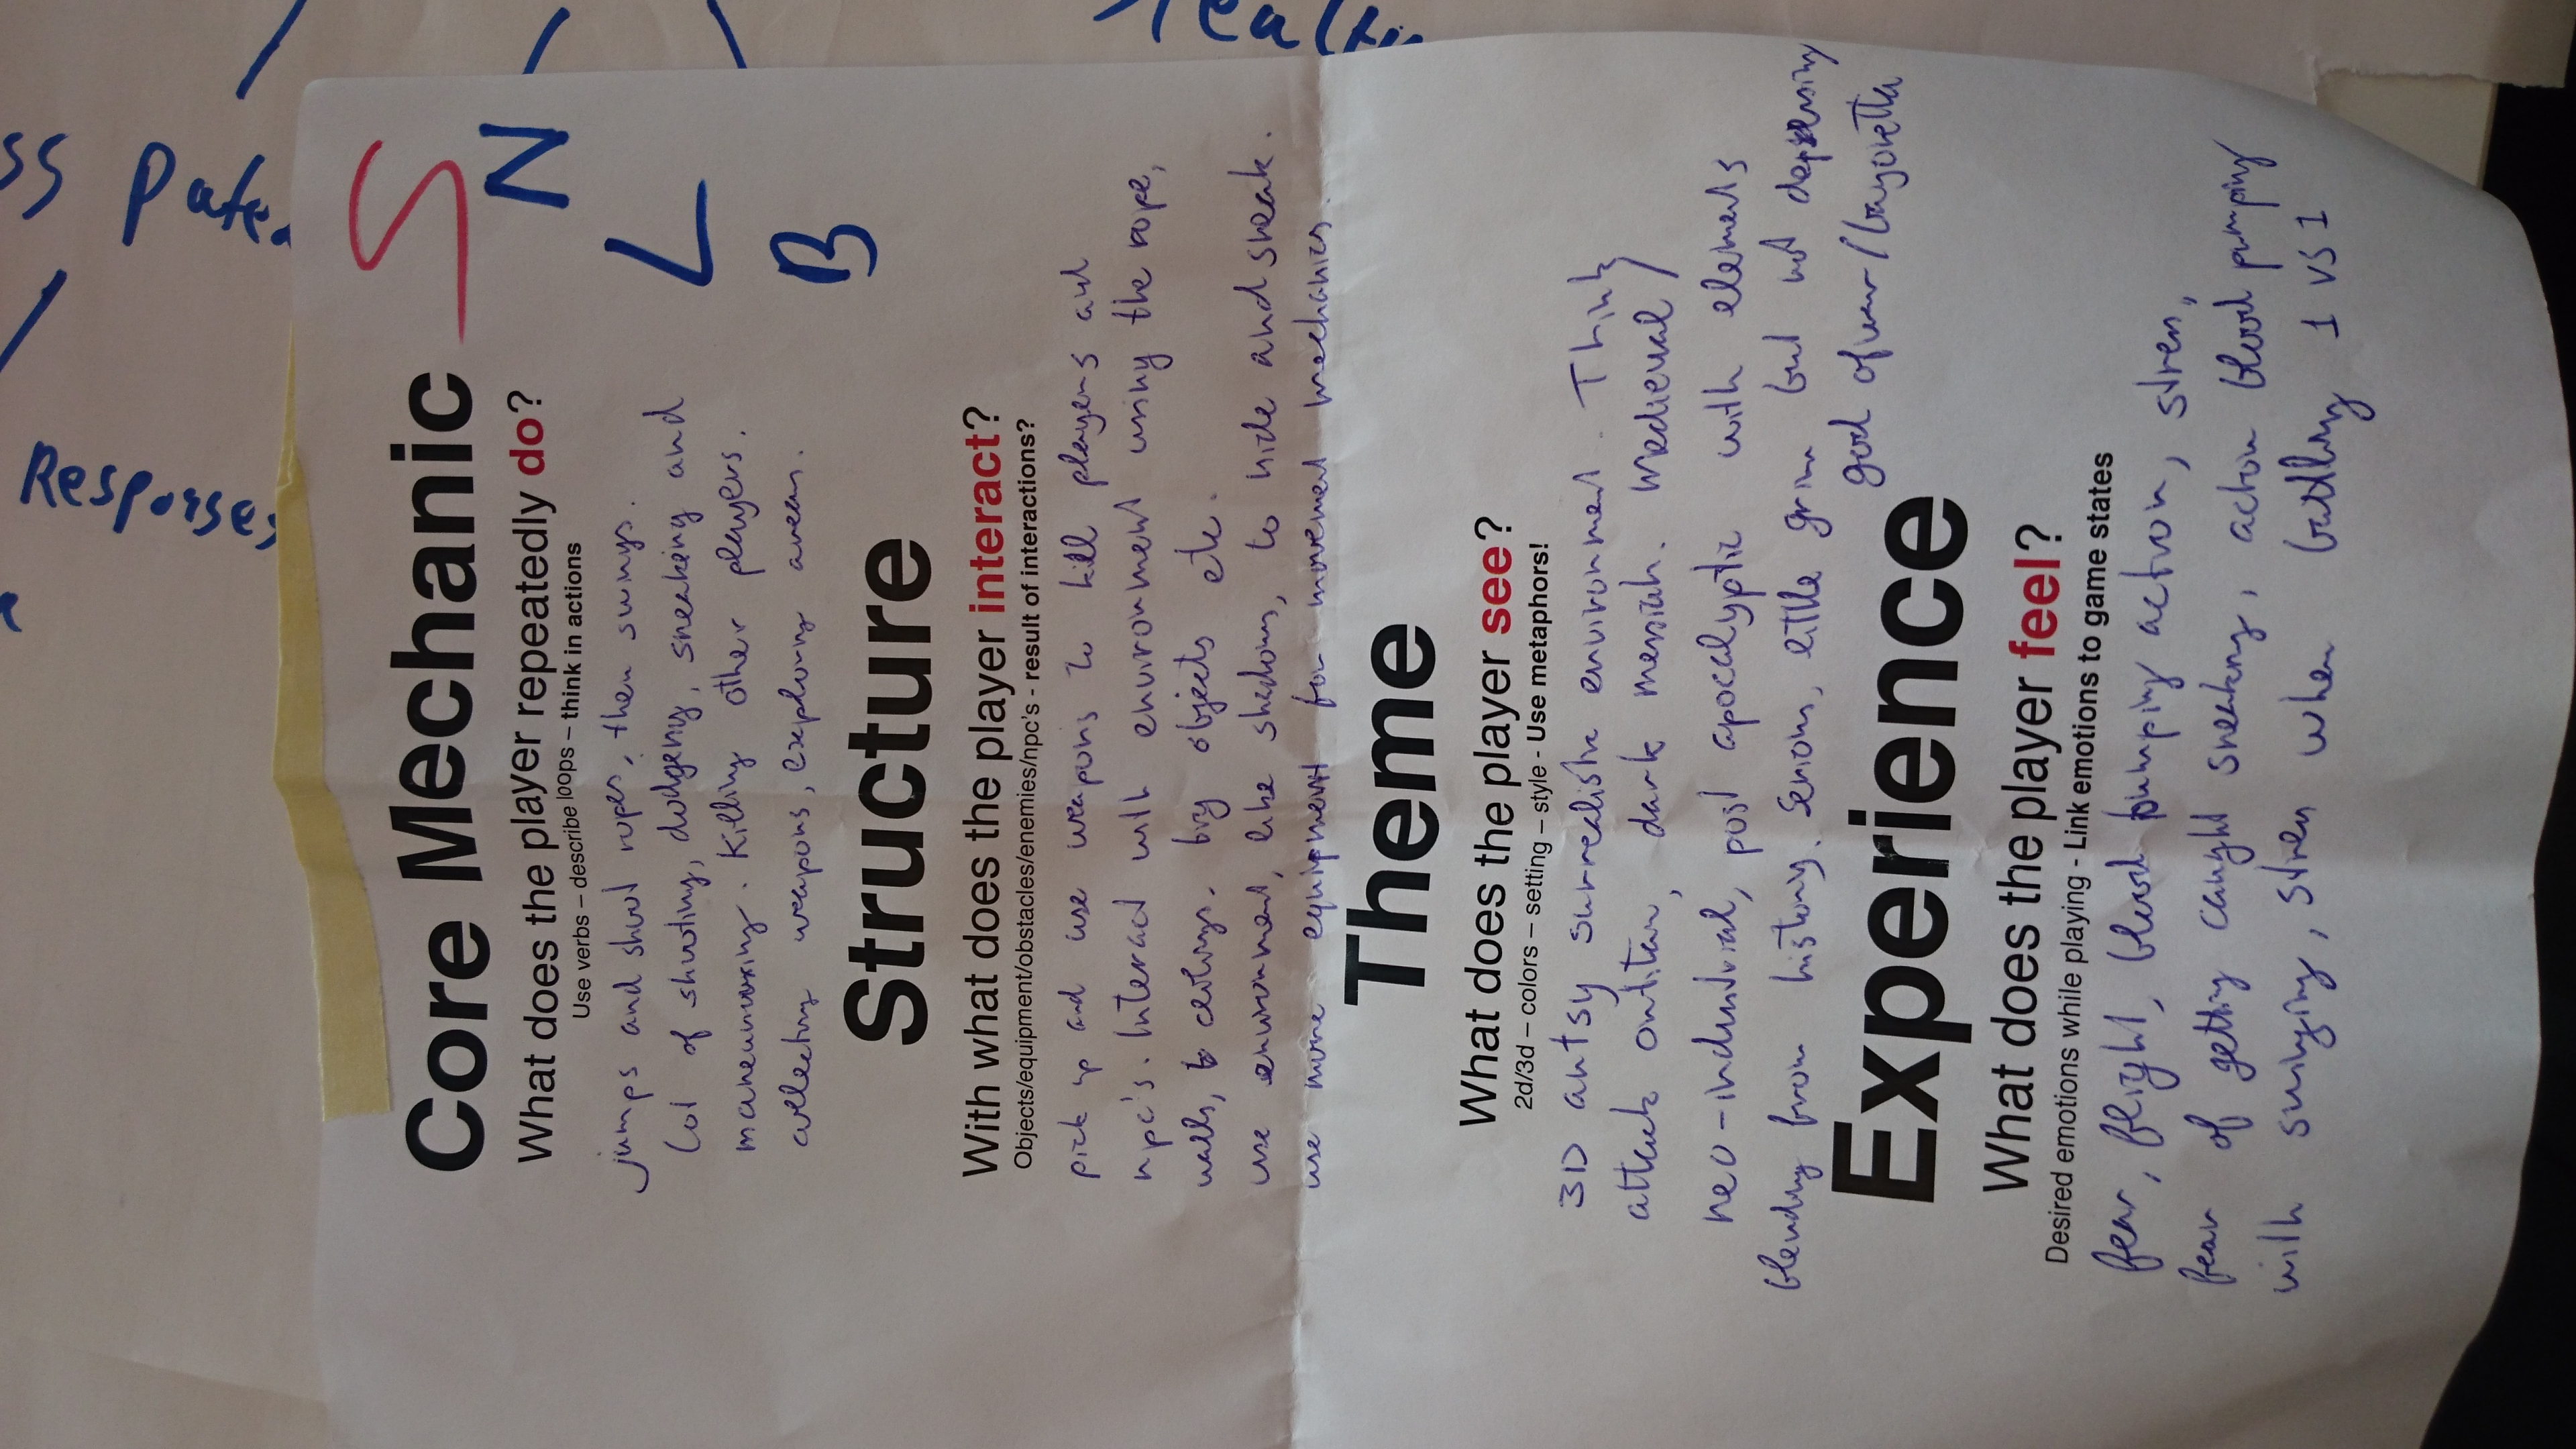 Core Mechanic
What does the player repeatedly do?
Use verbs – describe loops – think in actions
jumps and shoot ropes, then swings.
Lot of shooting, dodgeing, sneaking and
maneuvering. Killing other players.
collecting weapons, exploring areas.
S
N
L
B
Structure
With what does the player interact?
Objects/equipment/obstacles/enemies/npc's - result of interactions?
pick up and use weapons to kill players and
npc's. Interact with environment using the rope,
walls, ceilings, big objects etc.
use environment, like shadows, to hide and sneak.
use more equipment for movement mechanics.
Theme
What does the player see?
2d/3d – colors – setting – style - Use metaphors!
3D artsy surrealistic environment. Think
attack on titan, dark messiah. medieval /
neo-industrial, post apocalyptic with elements
blending from history. Serious, little grim but not depressing
god of war / bayonetta
Experience
What does the player feel?
Desired emotions while playing - Link emotions to game states
fear, flight, blood pumping action, stress,
fear of getting caught sneaking, action blood pumping
with swinging, stress when battling 1 vs 1
ss
Response,